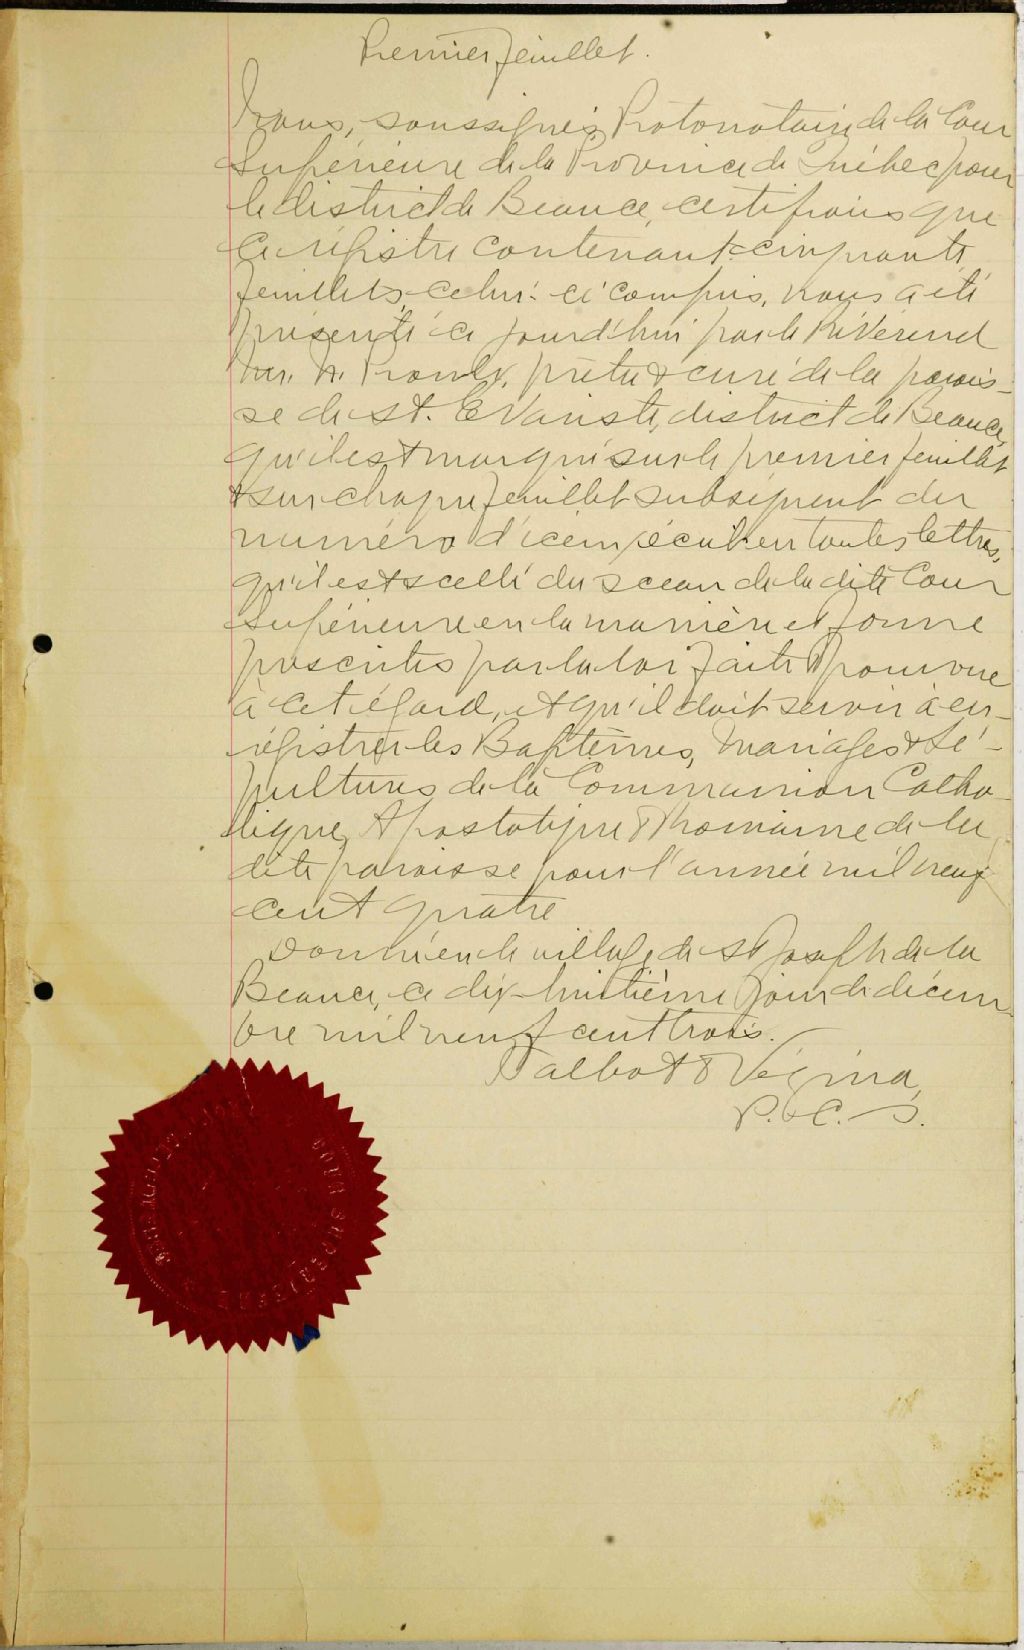 Premier feuillet.
Nous, soussignés, Protonotaire de la Cour
Supérieure de la Province de Québec pour
le district de Beauce, certifions que
ce régistre contenant cinquante
feuillets, celui-ci compris, nous a été
présenté ce jourd'hui par le Révérend
Mr. N. Proulx, prêtre & curé de la parois-
se de St. Evariste, district de Beauce,
qu'il est marqué sur le premier feuillet
& sur chaque feuillet subséquent du
numéro d'icelui, écrit en toutes lettres,
qu'il est scellé du sceau de la dite Cour
Supérieure en la manière et forme
prescrites par la loi faite & pourvue
à cet égard, & qu'il doit servir à en-
régistrer les Baptêmes, Mariages & Sé-
pultures de la Communion Catho-
lique, Apostolique & Romaine de la
dite paroisse pour l'année mil neuf
cent quatre
Donné en le village de St Joseph de la
Beauce, ce dix-huitième jour de décem-
bre mil neuf cent trois.
Talbot & Vézina,
P. C. S.
COUR SUPERIEURE